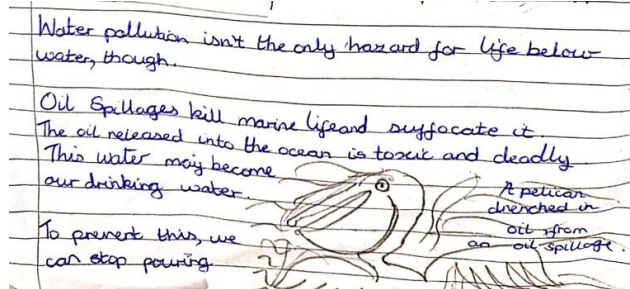 Water pollution isn't the only hazard for life below
water, though.
Oil Spillages kill marine life and suffocate it.
The oil released into the ocean is toxic and deadly
This water may become
our drinking water.
To prevent this, we
can stop pouring
A pelican
drenched in
oil from
an oil spillage.